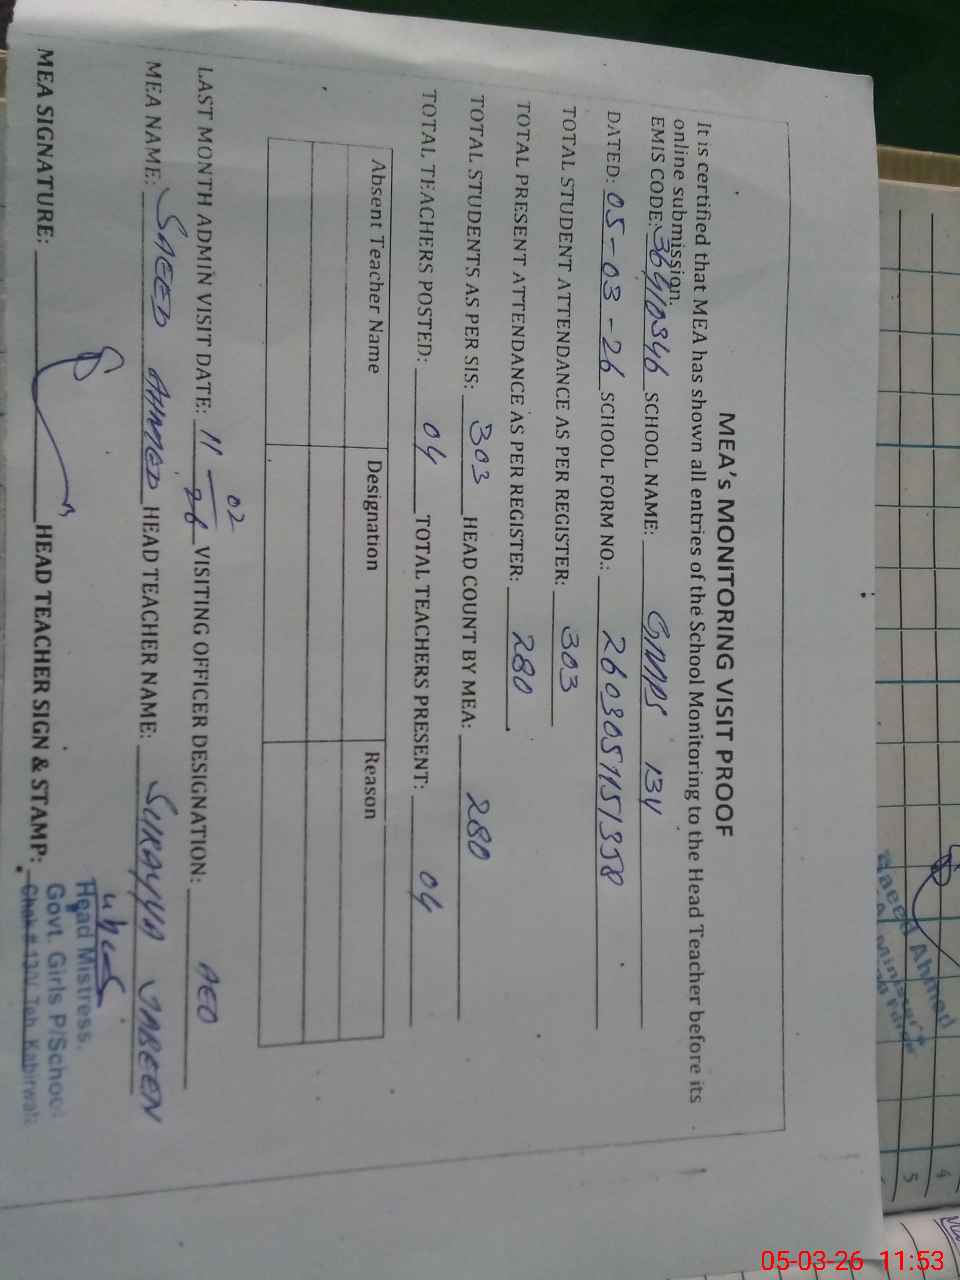 MEA's MONITORING VISIT PROOF
It is certified that MEA has shown all entries of the School Monitoring to the Head Teacher before its
online submission.
EMIS CODE: 36410346 SCHOOL NAME: GMPS 13V
DATED: 05-03-26 SCHOOL FORM NO.: 2603051151358
TOTAL STUDENT ATTENDANCE AS PER REGISTER: 303
TOTAL PRESENT ATTENDANCE AS PER REGISTER: 280
TOTAL STUDENTS AS PER SIS: 303 HEAD COUNT BY MEA: 280
TOTAL TEACHERS POSTED: 04 TOTAL TEACHERS PRESENT: 04
Absent Teacher Name Designation Reason
LAST MONTH ADMIN VISIT DATE: 11-02-26 VISITING OFFICER DESIGNATION: AEO
MEA NAME: SAEED AHMED HEAD TEACHER NAME: SURAYYA JABEEN
MEA SIGNATURE: HEAD TEACHER SIGN & STAMP:
Head Mistress.
Govt. Girls P/School
Chak # 13/V Teh. Kabirwala
Saeed Ahmed
4
5
05-03-26 11:53